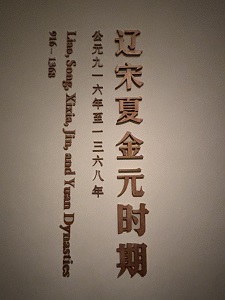 辽宋夏金元时期
公元九一六年至一三六八年
Liao, Song, Xixia, Jin, and Yuan Dynasties
916－1368